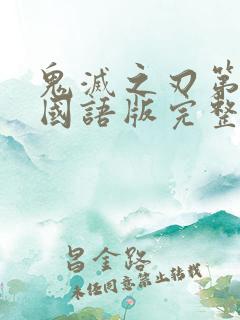 鬼滅之刃第
國語版完整
昌金路
未經同意禁止轉載